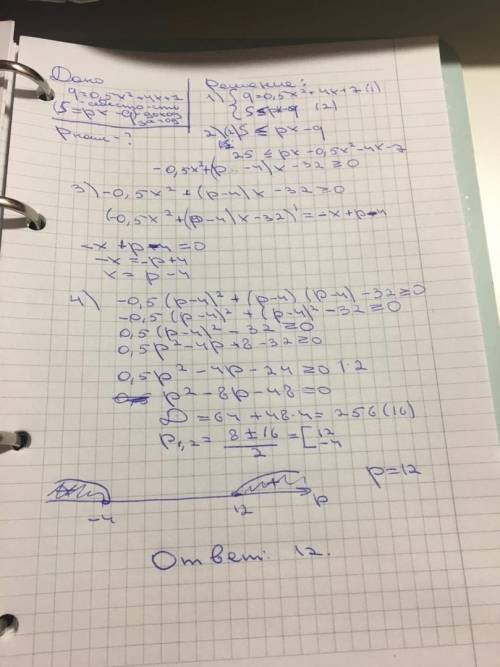 Дано
q=0,5x²+4x+7
px-q доход
Pнаим-?
Решение:
1) { q=0,5x²+4x+7 (1)
px-q (2)
2) ≤ px-q
25 ≤ px-0,5x²-4x-7
-0,5x²+(p-4)x-32≥0
3) -0,5x²+(p-4)x-32≥0
(-0,5x²+(p-4)x-32)'=-x+p-4
-x+p-4=0
-x=-p+4
x=p-4
4) -0,5(p-4)²+(p-4)(p-4)-32≥0
-0,5(p-4)²+(p-4)²-32≥0
0,5(p-4)²-32≥0
0,5p²-4p+8-32≥0
0,5p²-4p-24≥0 |·2
p²-8p-48=0
D=64+48·4=256(16)
P₁,₂= 8±16/2 =[12 -4
p=12
-4 12 p
Ответ: 12.